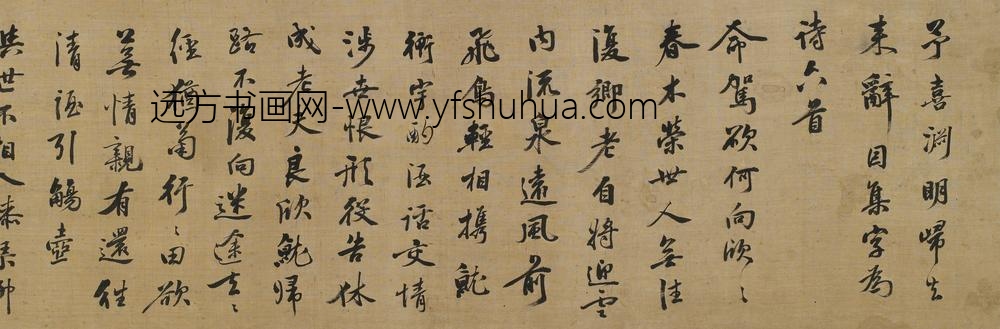 予喜淵明歸去
来辭因集字為
詩六首
命駕欲何向欣〻
春木榮世人無往
復鄉老自將迎雲
內流泉遠風前
飛鳥輕相攜就
衡宇酌酒話交情
涉世恨形役告休
成老夫良欣就歸
路不復向迷途去〻
徑猶菊行〻田欲
蕪情親有還往
清酒引觴壺
世不相入膝琴
远方书画网-www.yfshuhua.com